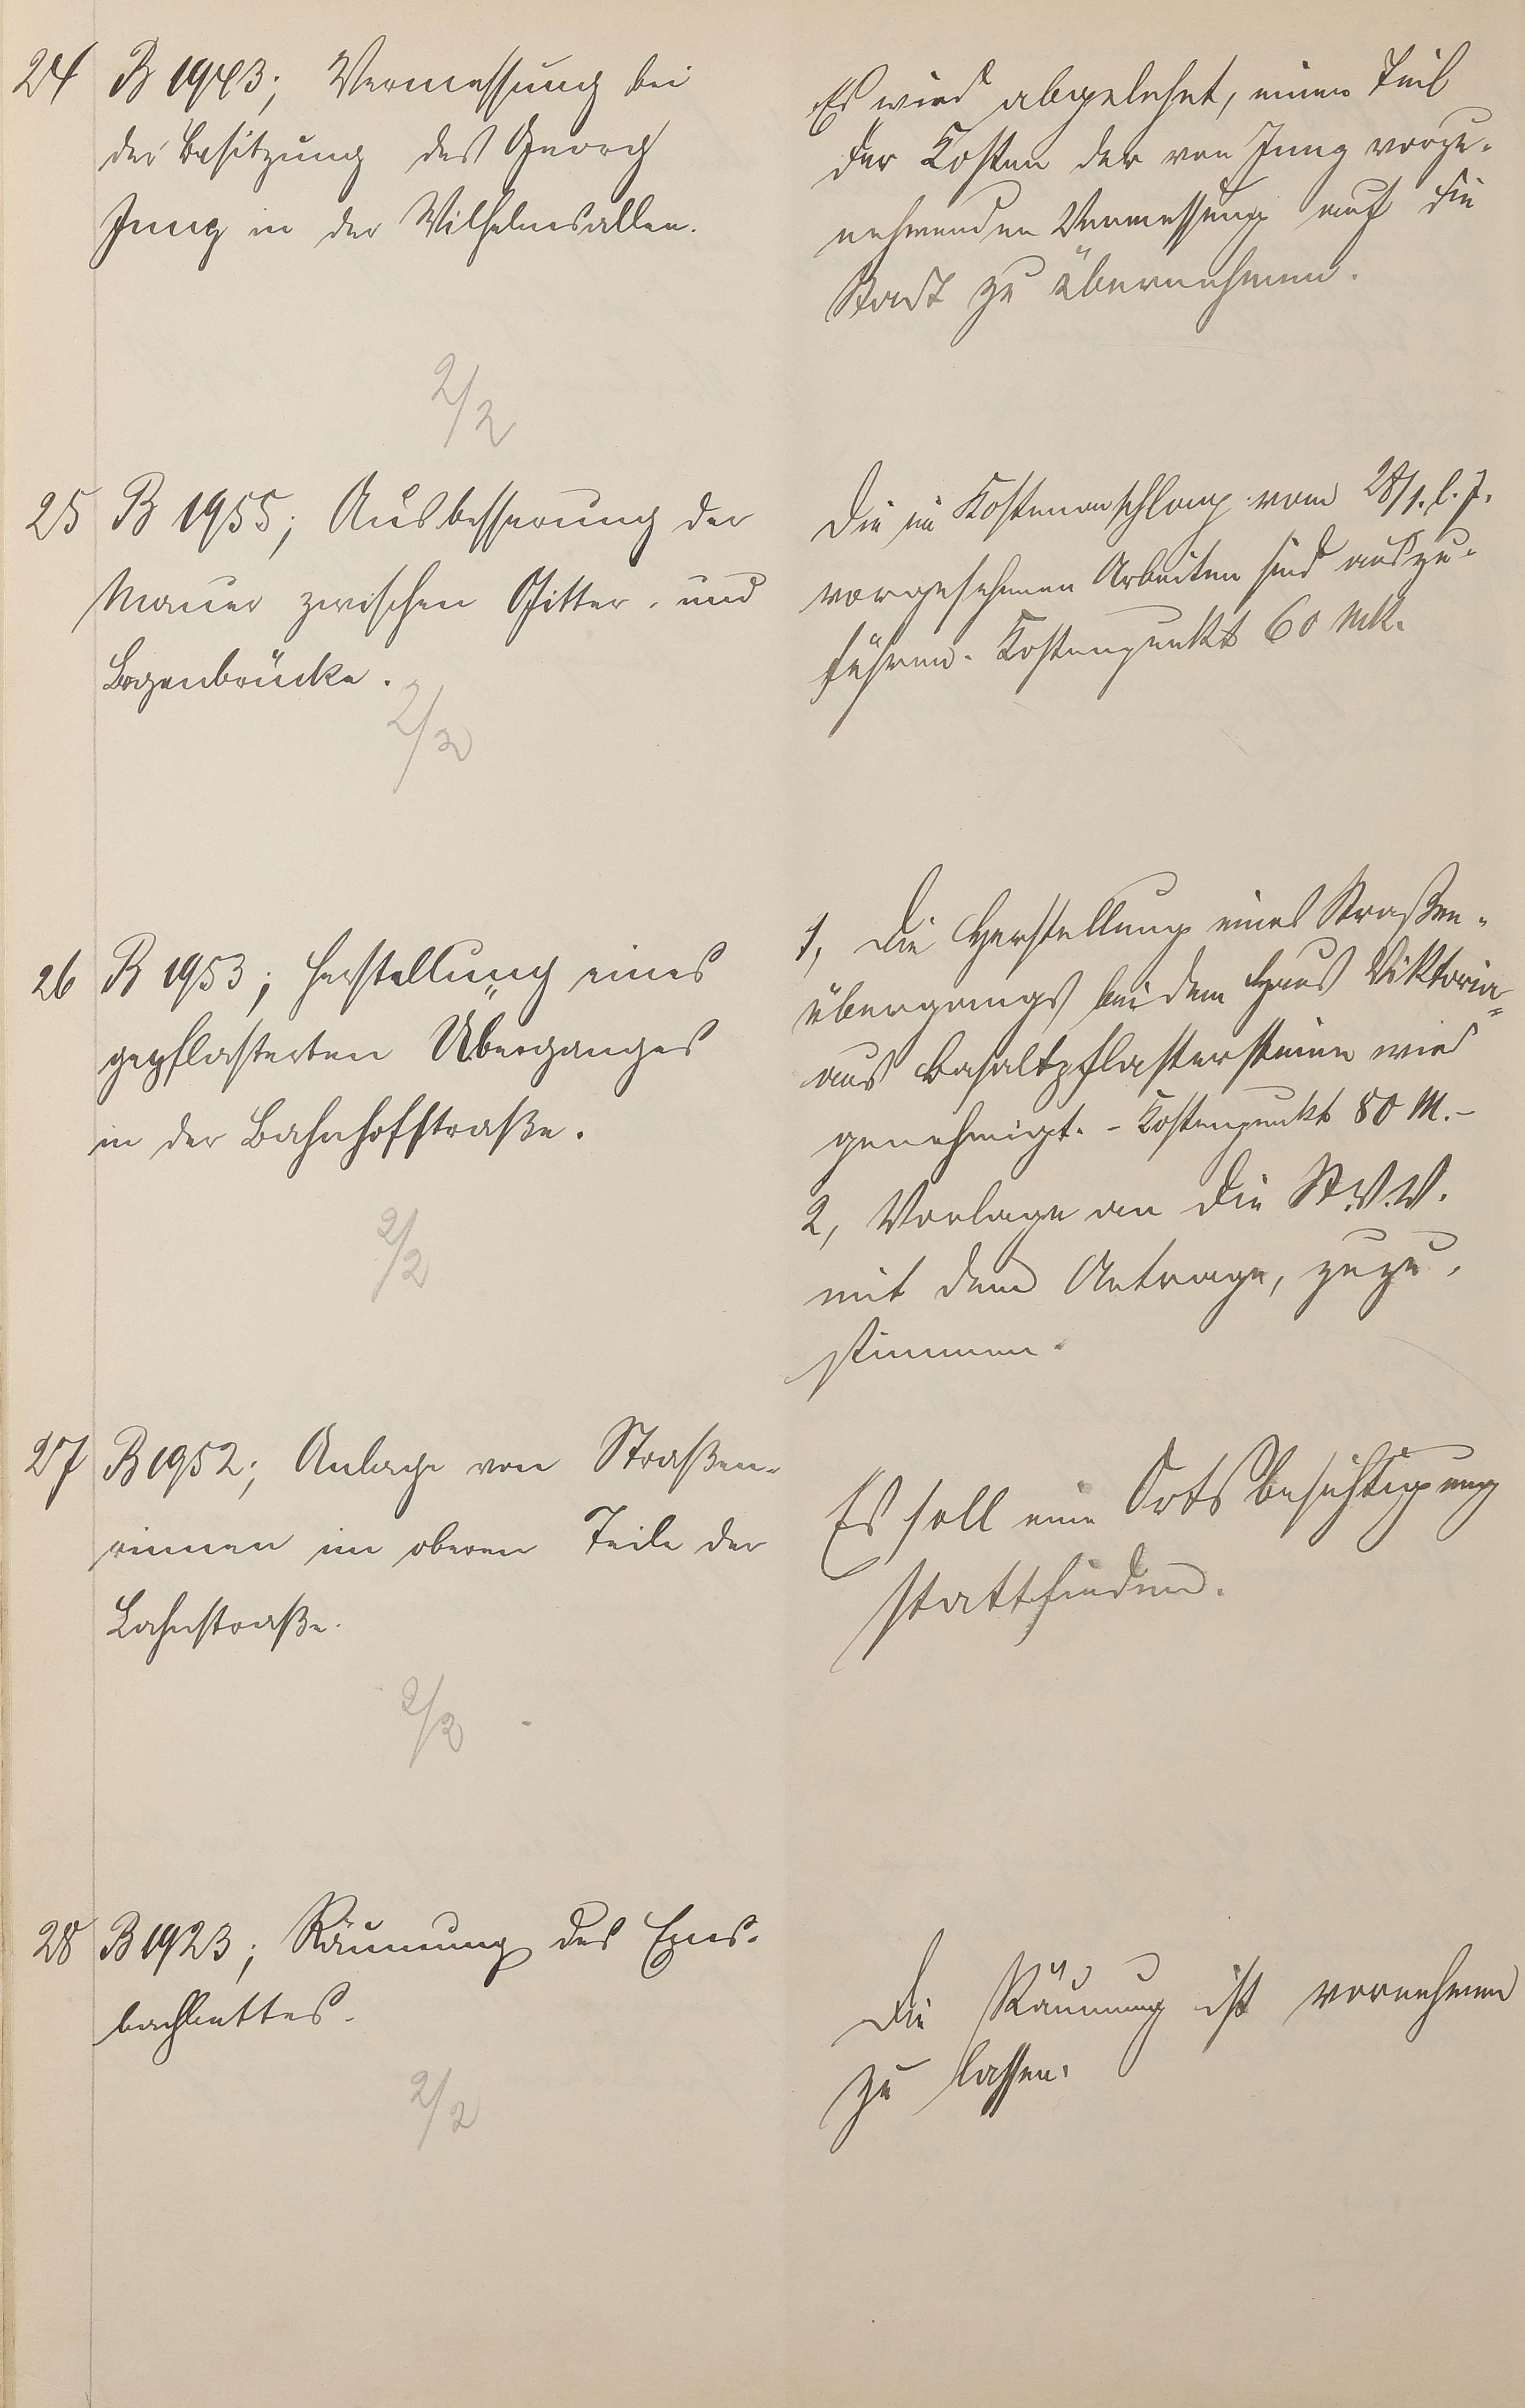 24 B 1943; Vermessung bei
der Besitzung des Georg
Jung in der Wilhelmsallee.
Es wird abgelehnt, einen Teil
der Kosten der von Jung vorzu-
nehmenden Vermessung auf die
Stadt zu übernehmen.
2/2
25 B 1955; Ausbesserung der
Mauer zwischen Gitter- und
Bogenbrücke.
Die im Kostenanschlag vom 28/1. l. J.
vorgesehenen Arbeiten sind auszu-
führen. Kostenpunkt 60 Mk.
2/2
26 B 1953; Herstellung eines
gepflasterten Überganges
in der Bahnhofstraße.
1, Die Herstellung eines Straßen-
übergangs bei dem Haus Viktoria
aus Basaltpflastersteinen wird
genehmigt. - Kostenpunkt 80 M. -
2, Vorlage an die St.V.V.
mit dem Antrage, zuzu-
stimmen.
2/2
27 B 1952; Anlage von Straßen-
rinnen im oberen Teile der
Lahnstraße.
Es soll eine Ortsbesichtigung
stattfinden.
2/2
28 B 1923; Räumung des Ems-
bachbettes.
Die Räumung ist vornehmen
zu lassen.
2/2